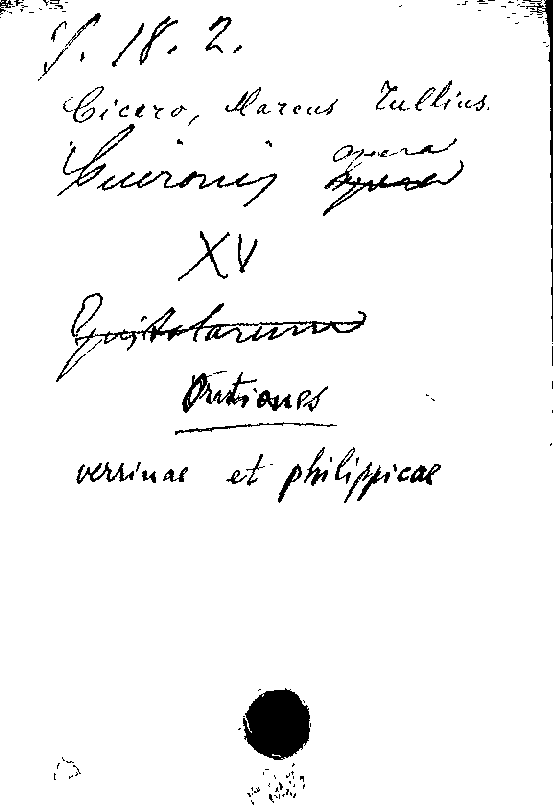 S. 18. 2.
Cicero, Marcus Tullius.
Ciceronis opera
XV
Epistolarum
Orationes
verrinae et philippicae